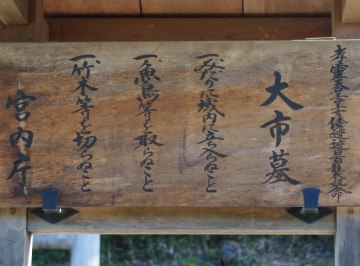 孝霊天皇皇女倭迹迹日百襲姫命
大市墓
一、みだりに域内に立入らぬこと
一、魚鳥等を取らぬこと
一、竹木等を切らぬこと
宮内庁